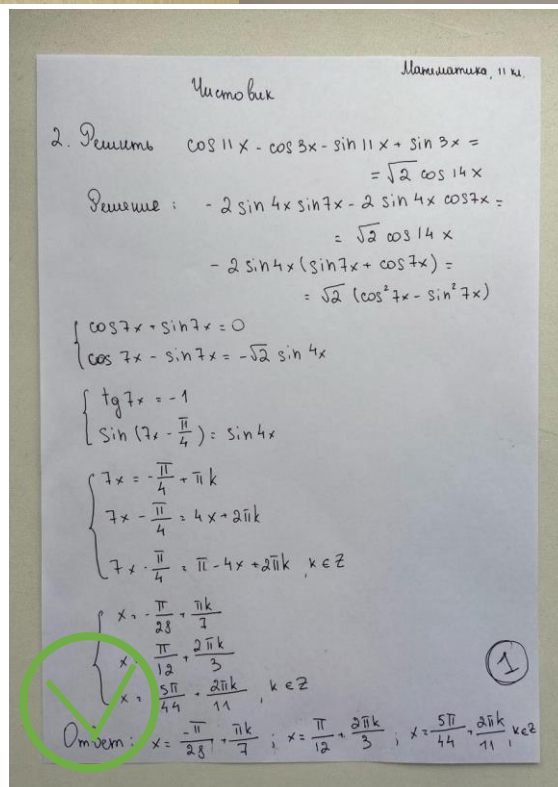 Математика, 11 кл.
Чистовик
2. Решить cos 11x - cos 3x - sin 11x + sin 3x =
= √2 cos 14x
Решение: - 2 sin 4x sin 7x - 2 sin 4x cos 7x =
= √2 cos 14x
- 2 sin 4x (sin 7x + cos 7x) =
= √2 (cos² 7x - sin² 7x)
cos 7x + sin 7x = 0
cos 7x - sin 7x = -√2 sin 4x
tg 7x = -1
sin (7x - π/4) = sin 4x
7x = -π/4 + πk
7x - π/4 = 4x + 2πk
7x - π/4 = π - 4x + 2πk, k ∈ Z
x = -π/28 + πk/7
x = π/12 + 2πk/3
x = 5π/44 + 2πk/11, k ∈ Z
Ответ: x = -π/28 + πk/7; x = π/12 + 2πk/3; x = 5π/44 + 2πk/11, k ∈ Z
1